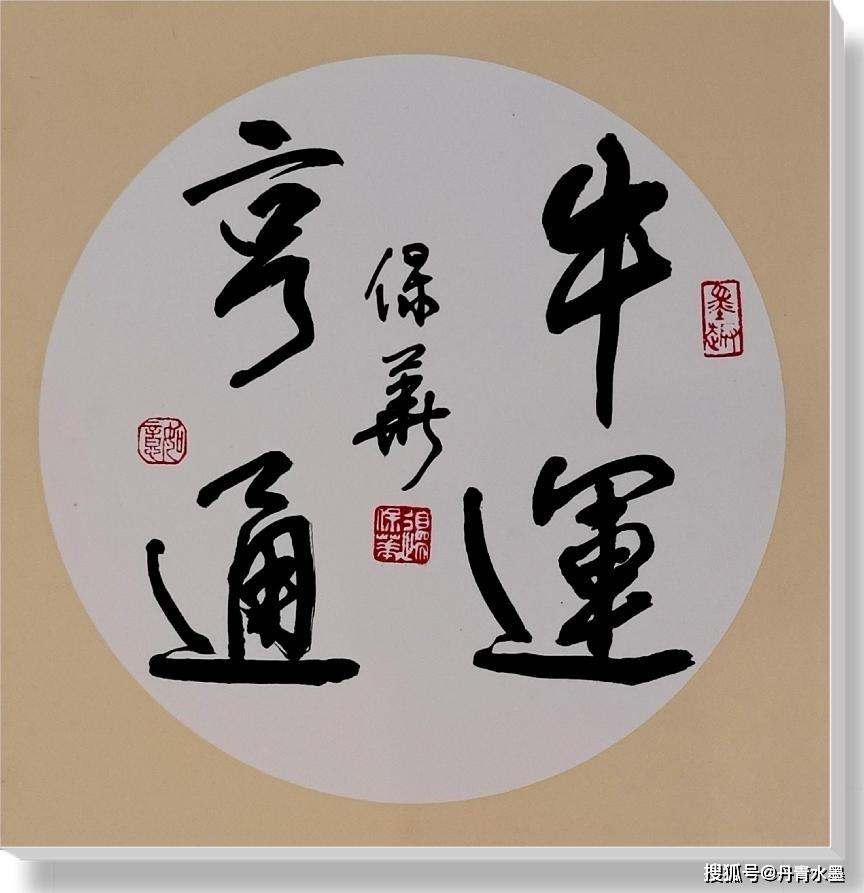 牛運
亨通
保華
如意
搜狐号@丹青水墨